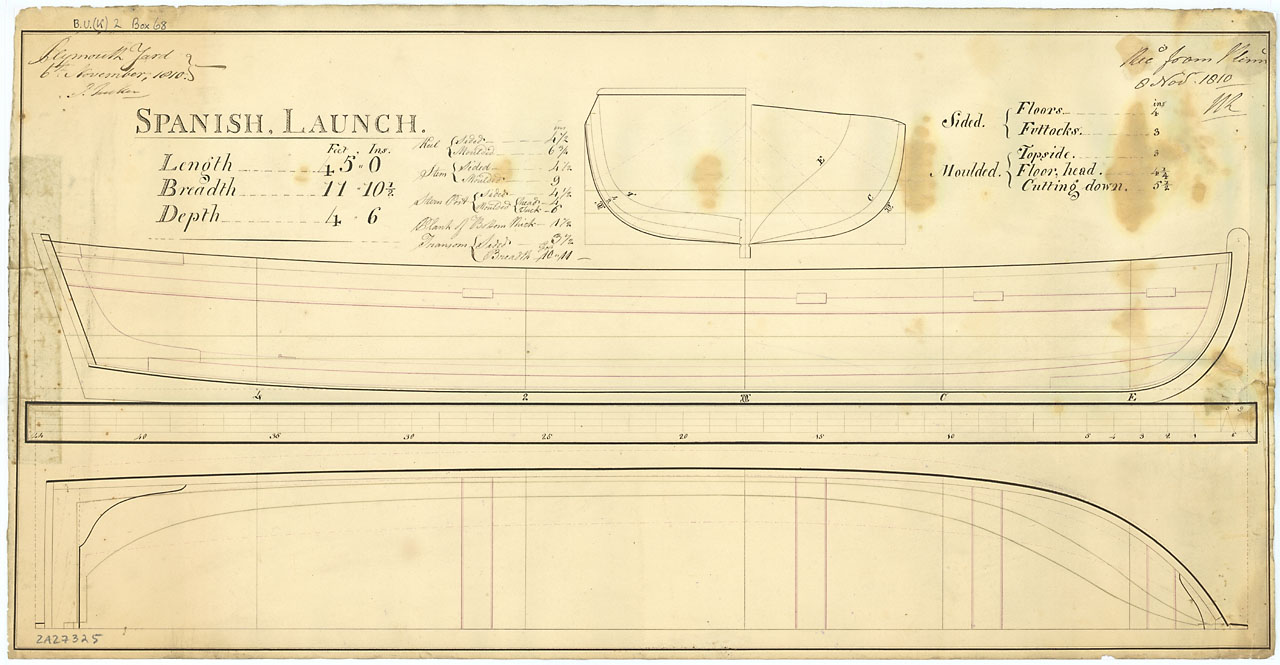 B.U.(K) 2 Box 68
Plymouth Yard
6th November, 1810.
J. Tucker
Recd from Plym
8 Nov. 1810
SPANISH, LAUNCH.
Feet. Ins.
Length 45 " 0
Breadth 11 " 10½
Depth 4 " 6
ins
Keel { Sided 4½
Moulded 6¾
Stem { Sided 4½
Moulded 9
Stern Post { Sided 4½
Moulded { head 4
Tuck 6
Plank of Bottom thick 1½
Transom { Sided 3½
Breadth 10 " 11
ins
Sided. { Floors 4
Futtocks. 3
Moulded. { Topside. 3
Floor, head. 4¼
Cutting down. 5½
E
C
4 2 C E
44 40 35 30 25 20 15 10 5 4 3 2 1 0
ZAZ7325